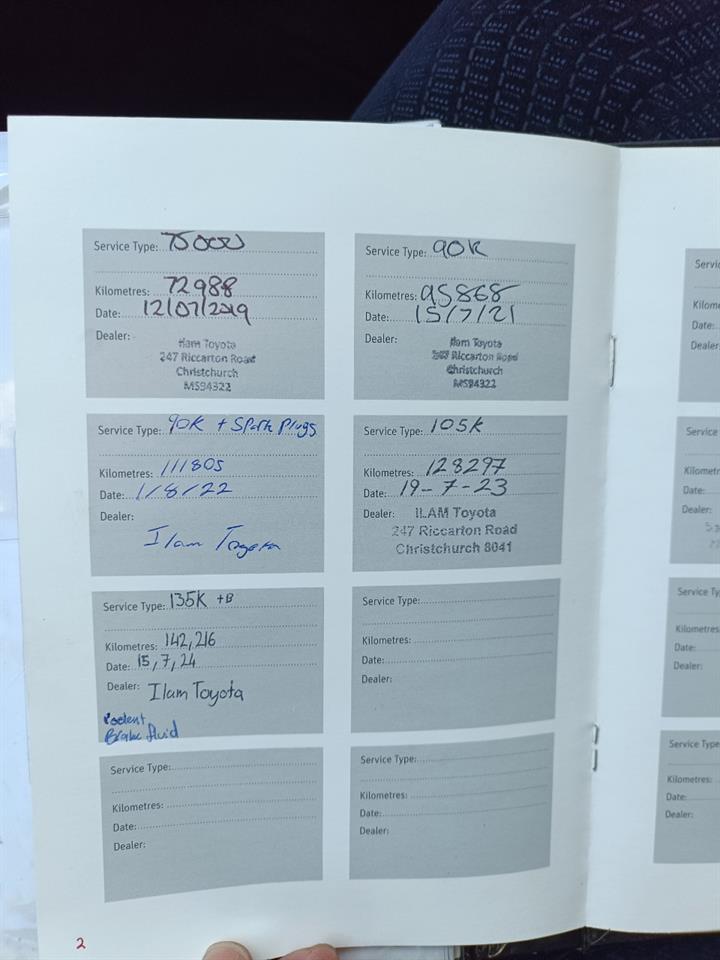 Service Type: 75000
Kilometres: 72988
Date: 12/07/2019
Dealer:
Ilam Toyota
247 Riccarton Road
Christchurch
MS94322
Service Type: 90K
Kilometres: 95868
Date: 15/7/21
Dealer:
Ilam Toyota
247 Riccarton Road
Christchurch
MS94322
Service Type: 90K + Spark Plugs
Kilometres: 111805
Date: 1/8/22
Dealer:
Ilam Toyota
Service Type: 105k
Kilometres: 128297
Date: 19-7-23
Dealer: ILAM Toyota
247 Riccarton Road
Christchurch 8041
Service Type: 135K +B
Kilometres: 142,216
Date: 15,7,24
Dealer: Ilam Toyota
Brake fluid
Service Type:
Kilometres:
Date:
Dealer:
Service Type:
Kilometres:
Date:
Dealer:
Service Type:
Kilometres:
Date:
Dealer:
2
Servic
Kilom
Date:
Dealer
Service
Kilomet
Date:
Dealer:
Service Ty
Kilometres
Date:
Dealer:
Service Type
Kilometres:
Date:
Dealer: